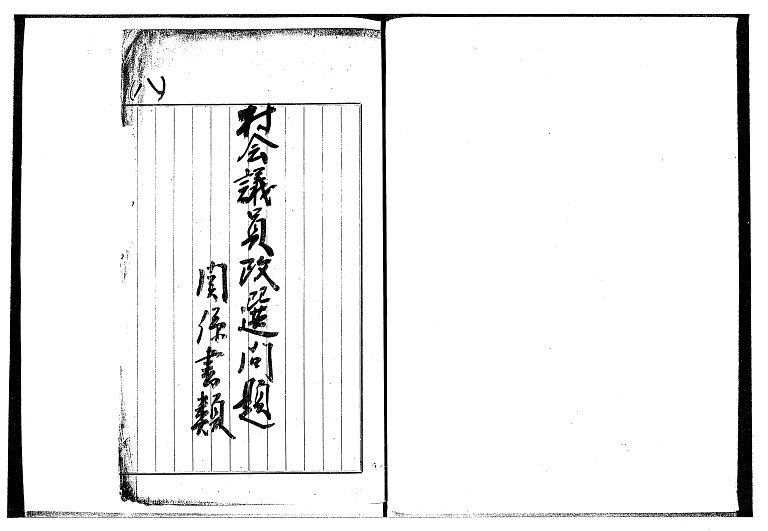 村会議員改選問題
関係書類